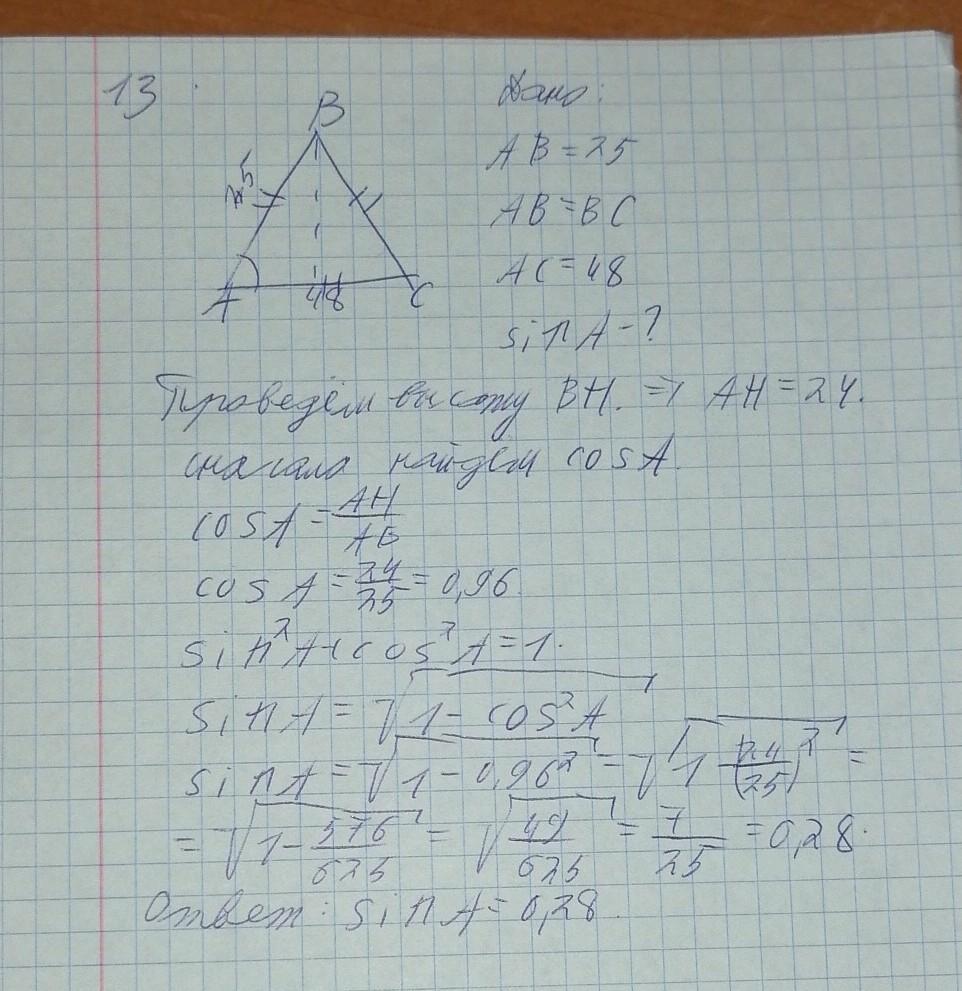 13
B
25
A
48
C
Дано:
AB = 25
AB = BC
AC = 48
sin A - ?
Проведём высоту BH. => AH = 24.
сначала найдём cos A.
cos A = AH/AB
cos A = 24/25 = 0,96.
sin²A + cos²A = 1.
sin A = √(1 - cos²A)
sin A = √(1 - 0,96²) = √(1 - (24/25)²) =
= √(1 - 576/625) = √(49/625) = 7/25 = 0,28.
Ответ: sin A = 0,28.